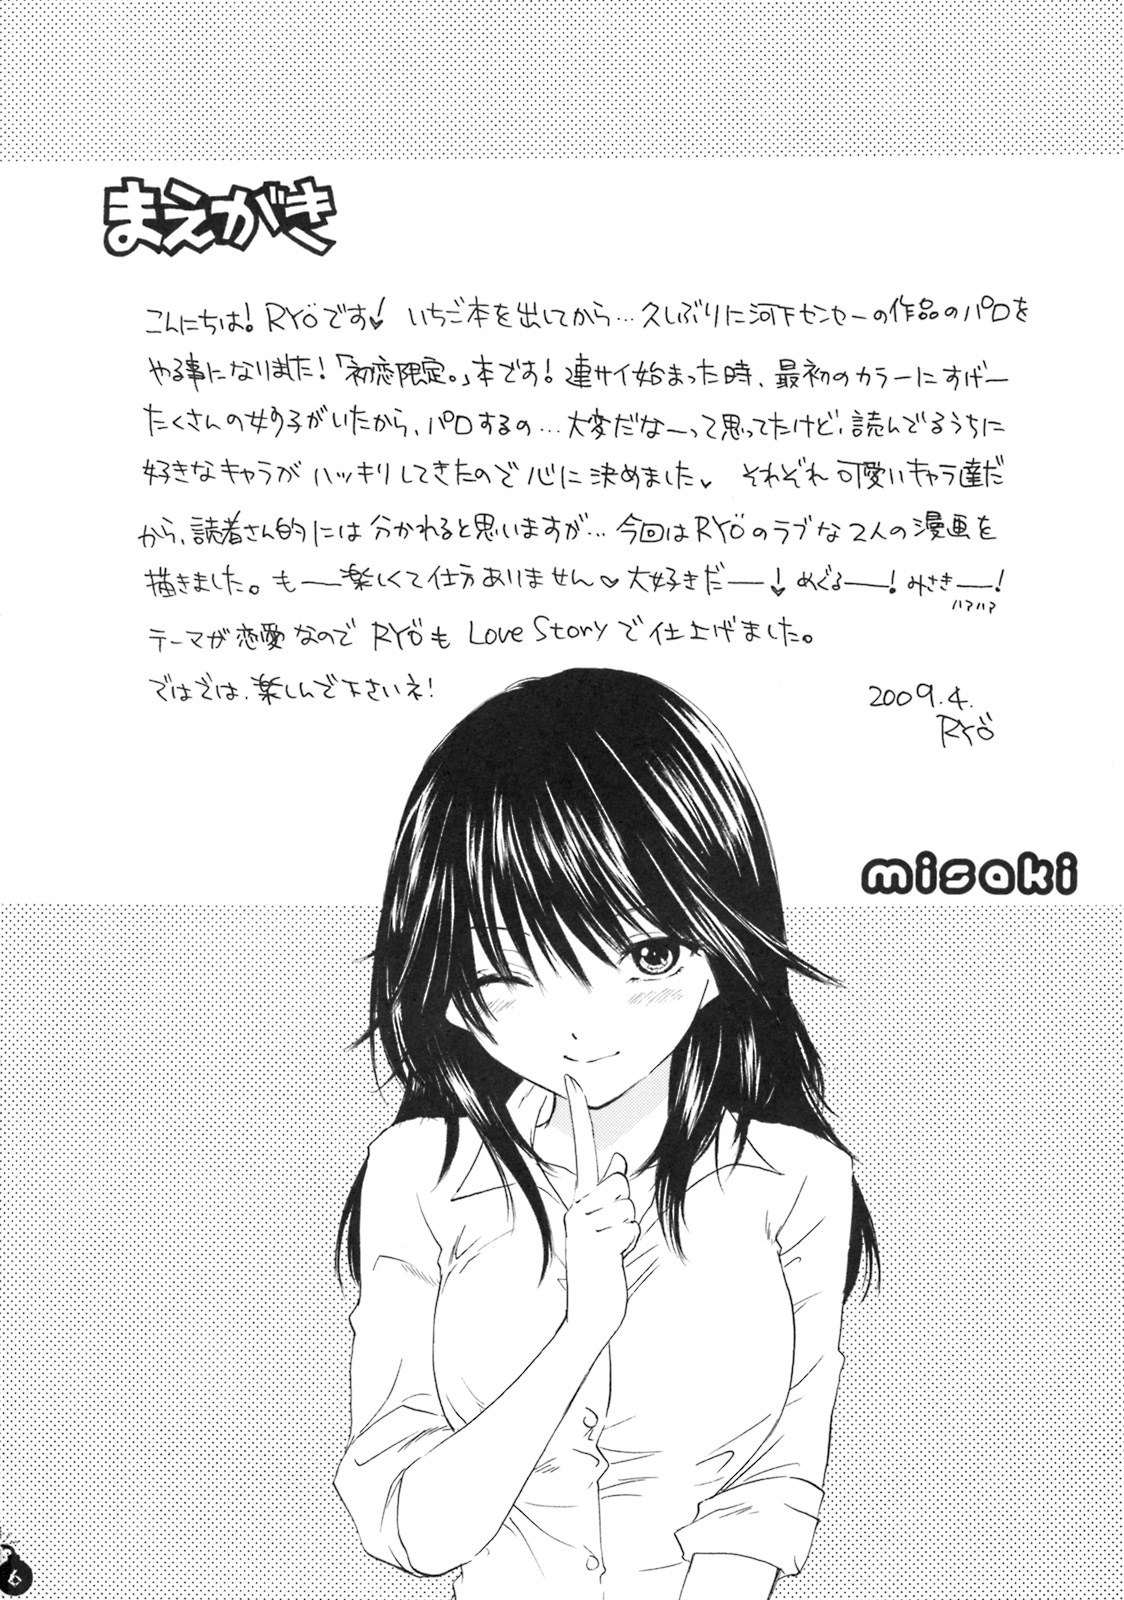 まえがき
こんにちは！RYÖです♥ いちご本を出してから…久しぶりに河下センセーの作品のパロを
やる事になりました！「初恋限定。」本です！連サイ始まった時、最初のカラーにすげー
たくさんの女の子がいたから、パロするの…大変だなーって思ってたけど、読んでるうちに
好きなキャラがハッキリしてきたので心に決めました♥ それぞれ可愛いキャラ達だ
から、読者さん的には分かれると思いますが…今回はRYÖのラブな2人の漫画を
描きました。も──楽しくて仕方ありません♡大好きだ──♥めぐる──！みさき──！
ハァハァ
テーマが恋愛なのでRYÖも Love Storyで仕上げました。
ではでは、楽しんで下さいネ！
2009.4.
RYÖ
misaki
6